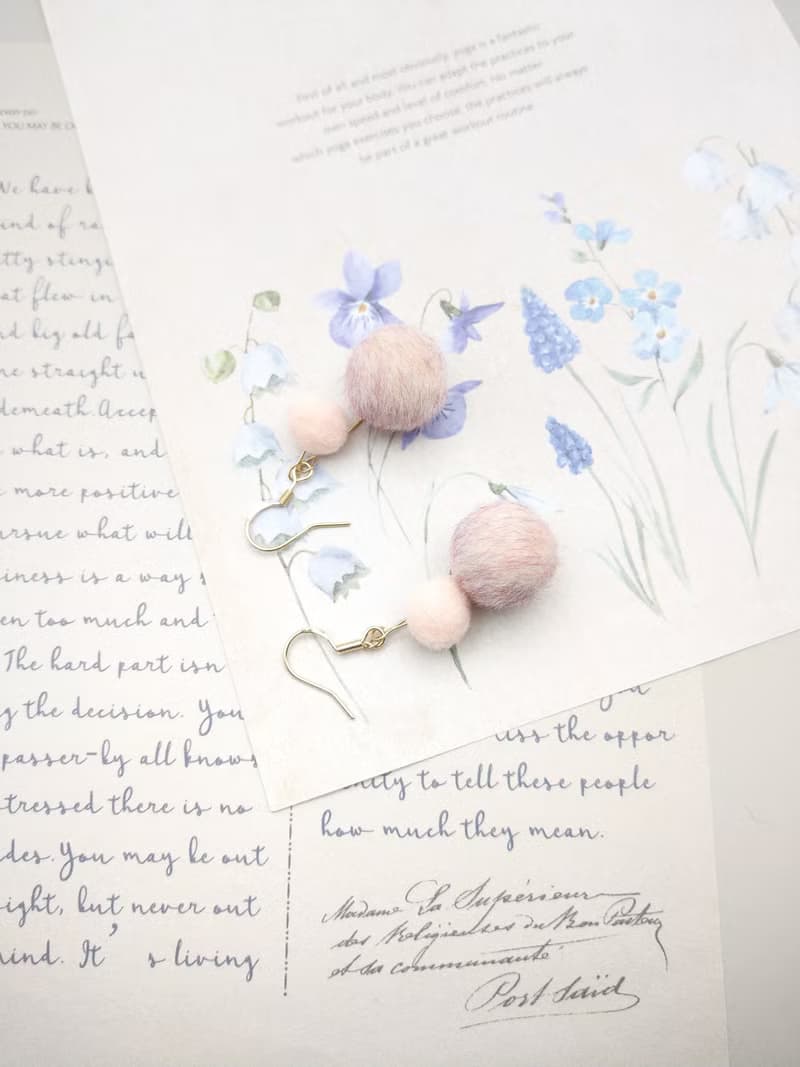 First of all and most obviously, yoga is a fantastic
workout for your body. You can adapt the practices to your
own speed and level of comfort. No matter
which yoga exercises you choose, the practices will always
be part of a great workout routine.
YOU MAY BE
We have
ind of
tty
at flew in
nd big old
straight
demeath.Accep
what is, and
more positive
ursue what will
iness is a way
en too much and
The hard part isn
g the decision. You
passer-by all knows
tressed there is no
des.You may be out
ight, but never out
ind. It's living
you
iss the oppor
nity to tell these people
how much they mean.
Madame La Supérieur
des Religieuses du Bon Pasteur
et sa communauté
Port Saïd